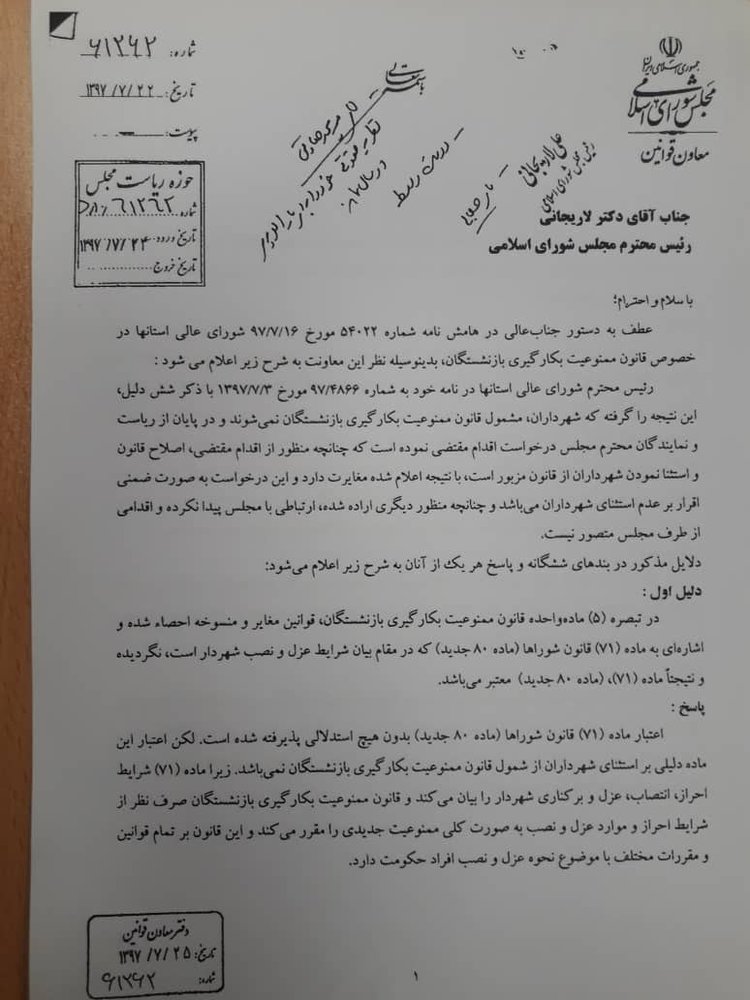 جمهوری اسلامی ایران
مجلس شورای اسلامی
معاون قوانین
شماره: ۶۱۲۶۲
تاریخ: ۱۳۹۷/۷/۲۲
پیوست:
حوزه ریاست مجلس
شماره ۶۱۲۶۲
تاریخ ورود ۱۳۹۷/۷/۲۴
تاریخ خروج
باسمه تعالی
علی لاریجانی
رئیس مجلس شورای اسلامی
جناب آقای دکتر لاریجانی
رئیس محترم مجلس شورای اسلامی
با سلام و احترام؛
عطف به دستور جناب‌عالی در هامش نامه شماره ۵۴۰۲۲ مورخ ۹۷/۷/۱۶ شورای عالی استانها در
خصوص قانون ممنوعیت بکارگیری بازنشستگان، بدینوسیله نظر این معاونت به شرح زیر اعلام می شود :
رئیس محترم شورای عالی استانها در نامه خود به شماره ۹۷/۴۸۶۶ مورخ ۱۳۹۷/۷/۳ با ذکر شش دلیل،
این نتیجه را گرفته که شهرداران، مشمول قانون ممنوعیت بکارگیری بازنشستگان نمی‌شوند و در پایان از ریاست
و نمایندگان محترم مجلس درخواست اقدام مقتضی نموده است که چنانچه منظور از اقدام مقتضی، اصلاح قانون
و استثنا نمودن شهرداران از قانون مزبور است، با نتیجه اعلام شده مغایرت دارد و این درخواست به صورت ضمنی
اقرار بر عدم استثنای شهرداران می‌باشد و چنانچه منظور دیگری اراده شده، ارتباطی با مجلس پیدا نکرده و اقدامی
از طرف مجلس متصور نیست.
دلایل مذکور در بندهای ششگانه و پاسخ هر یک از آنان به شرح زیر اعلام می‌شود:
دلیل اول :
در تبصره (۵) ماده‌واحده قانون ممنوعیت بکارگیری بازنشستگان، قوانین مغایر و منسوخه احصاء شده و
اشاره‌ای به ماده (۷۱) قانون شوراها (ماده ۸۰ جدید) که در مقام بیان شرایط عزل و نصب شهردار است، نگردیده
و نتیجتاً ماده (۷۱)، (ماده ۸۰ جدید) معتبر می‌باشد.
پاسخ :
اعتبار ماده (۷۱) قانون شوراها (ماده ۸۰ جدید) بدون هیچ استدلالی پذیرفته شده است. لکن اعتبار این
ماده دلیلی بر استثنای شهرداران از شمول قانون ممنوعیت بکارگیری بازنشستگان نمی‌باشد. زیرا ماده (۷۱) شرایط
احراز، انتصاب، عزل و برکناری شهردار را بیان می‌کند و قانون ممنوعیت بکارگیری بازنشستگان صرف نظر از
شرایط احراز و موارد عزل و نصب به صورت کلی ممنوعیت جدیدی را مقرر می‌کند و این قانون بر تمام قوانین
و مقررات مختلف با موضوع نحوه عزل و نصب افراد حکومت دارد.
دفتر معاون قوانین
تاریخ: ۱۳۹۷/۷/۲۵
شماره: ۶۱۲۶۲
۱